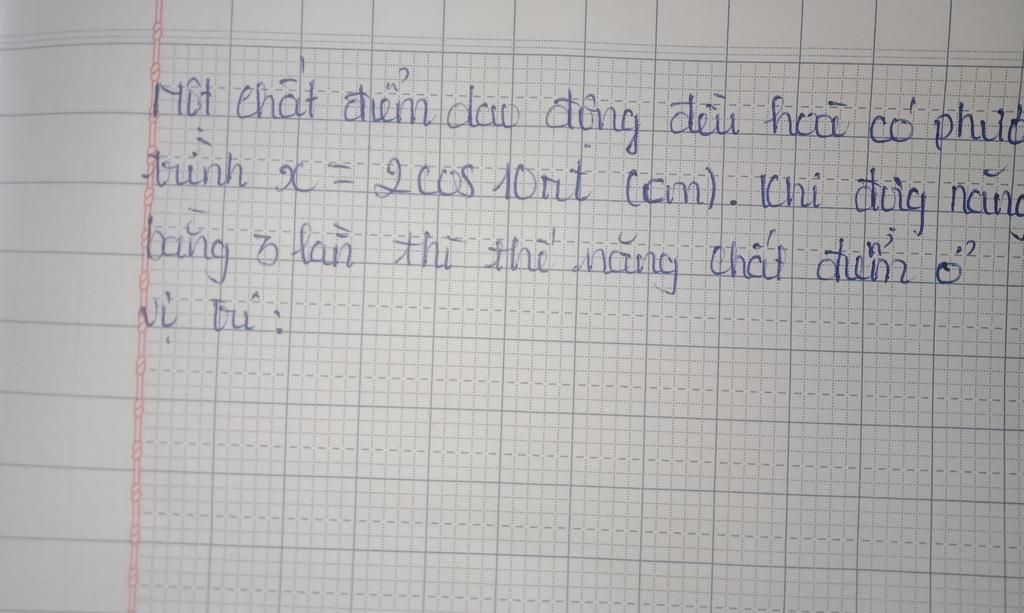 Một chất điểm dao động điều hoà có phươ
trình x = 2cos 10πt (cm). Khi động năng
bằng 3 lần thì thế năng chất điểm ở
vị trí: